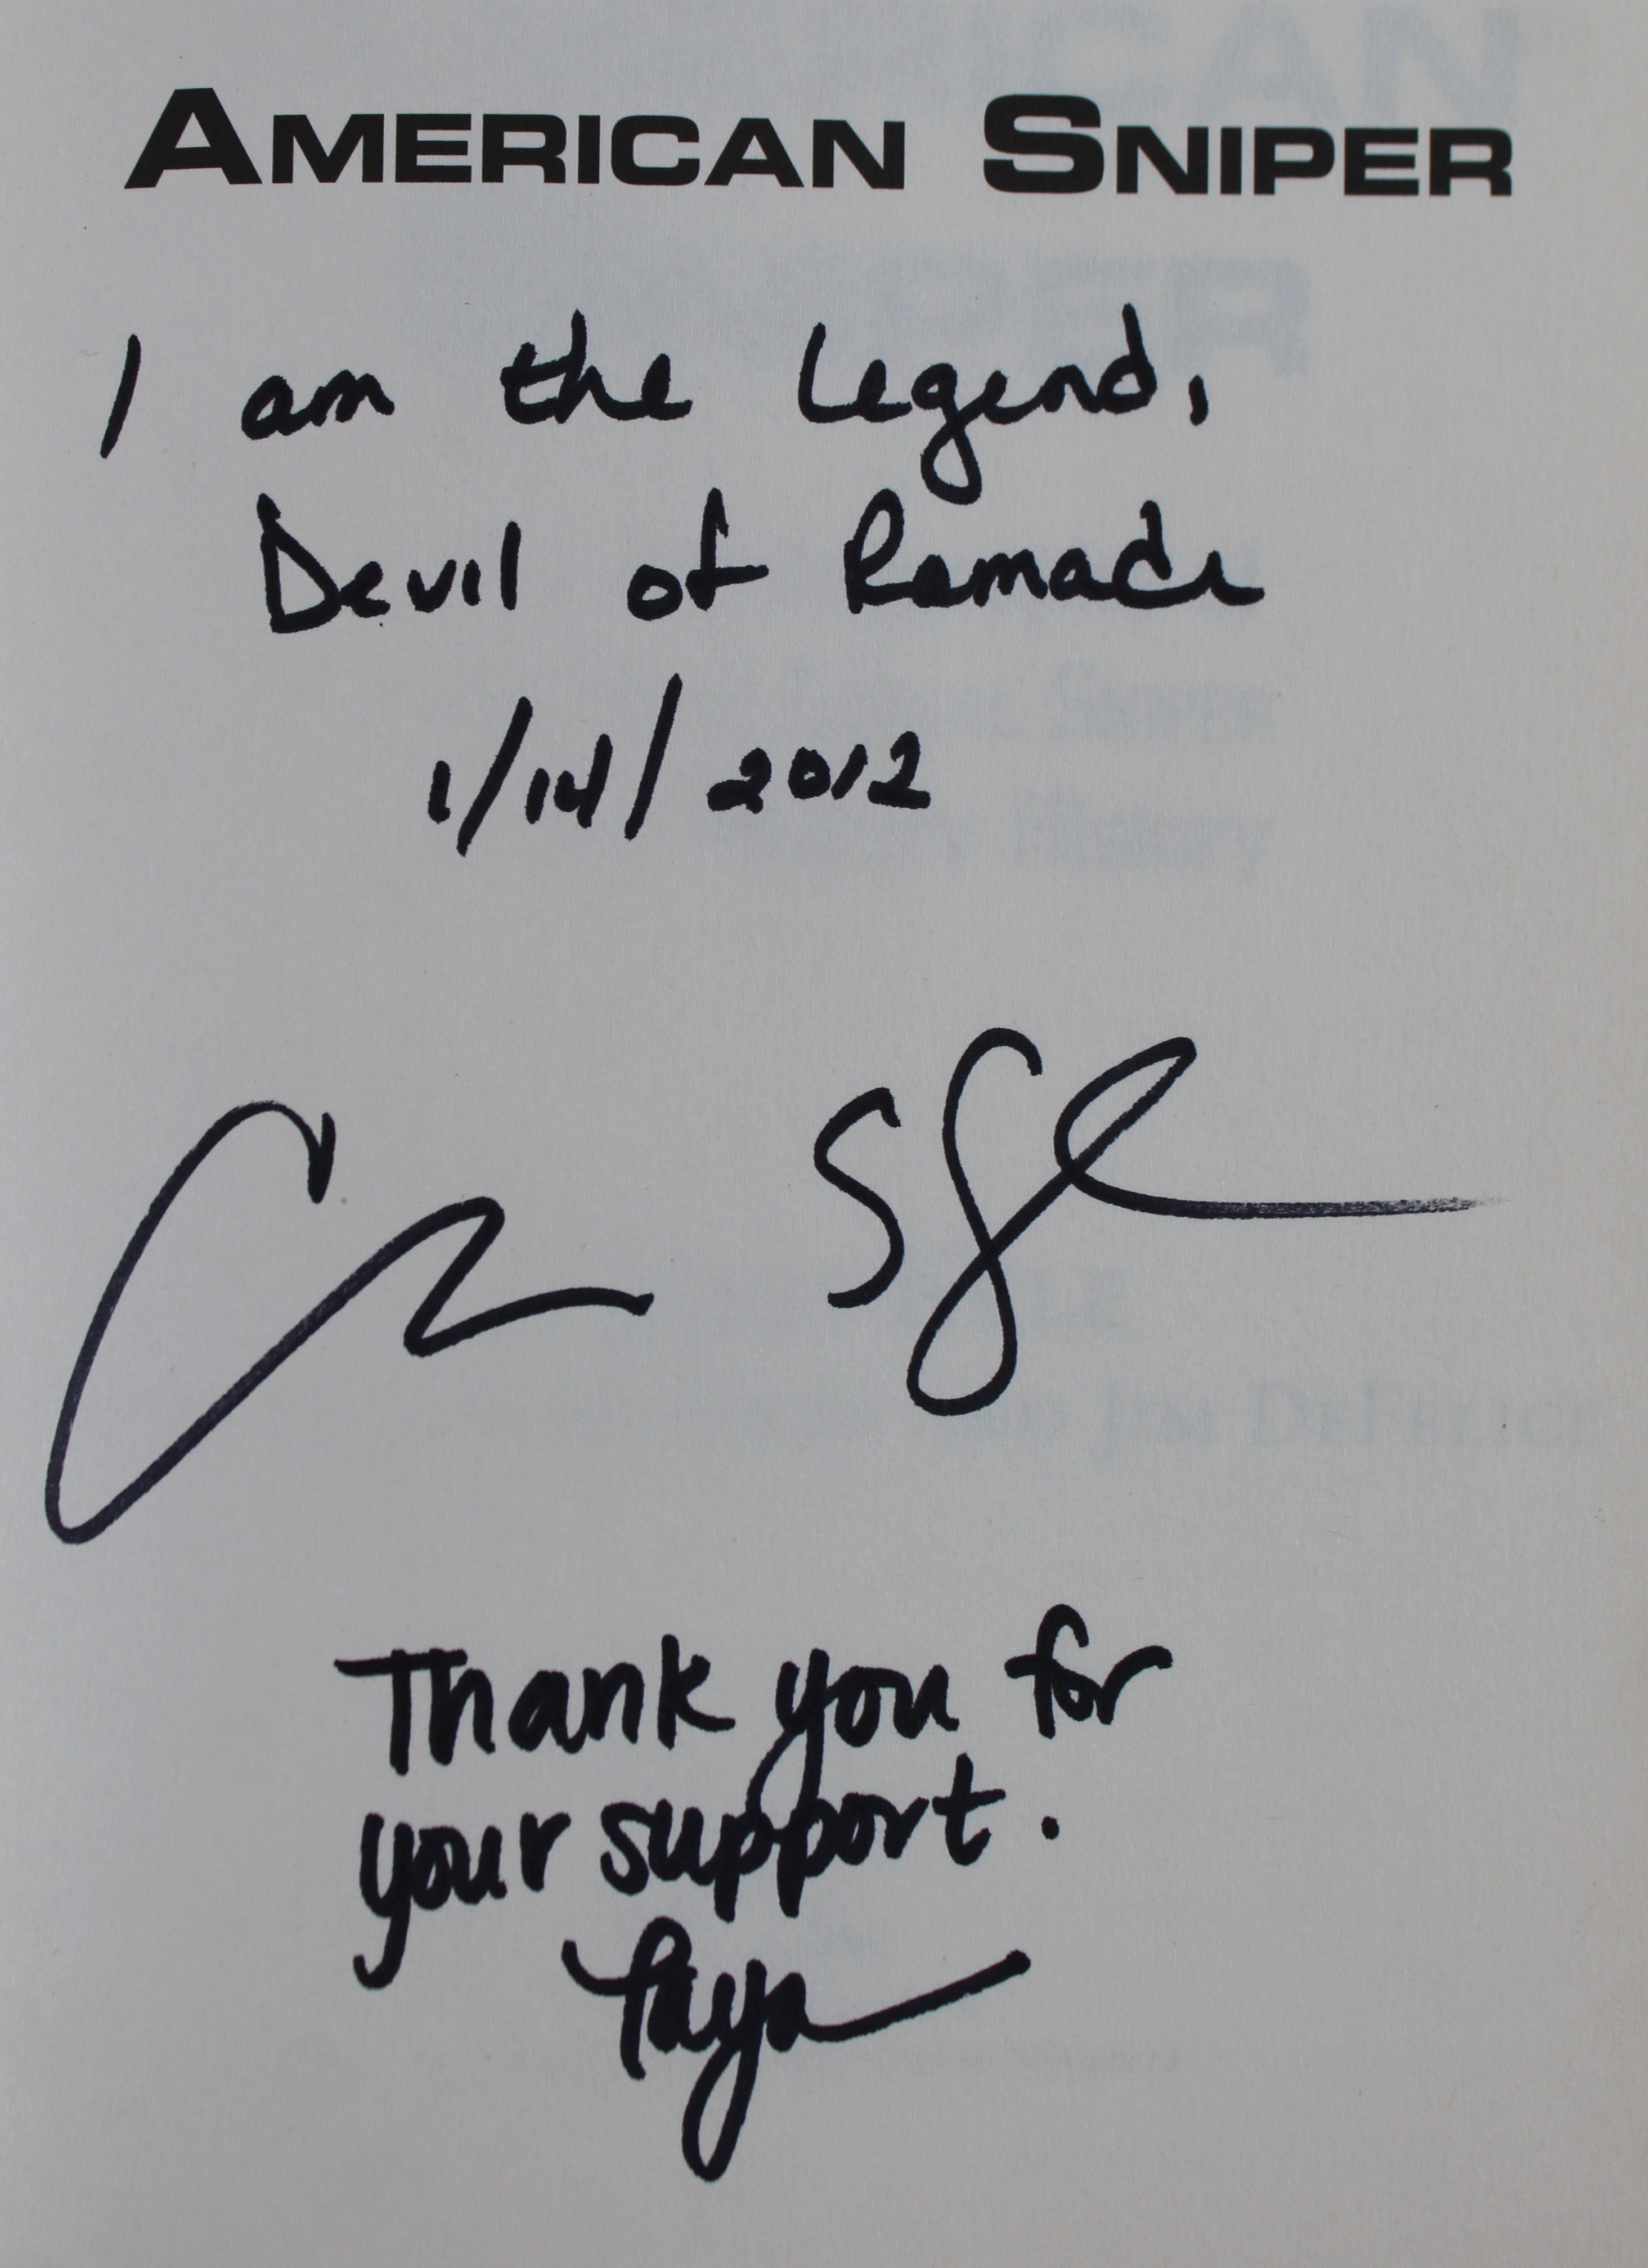 AMERICAN SNIPER
I am the Legend,
Devil of Ramadi
1/14/2012
Thank you for
your support.
Taya